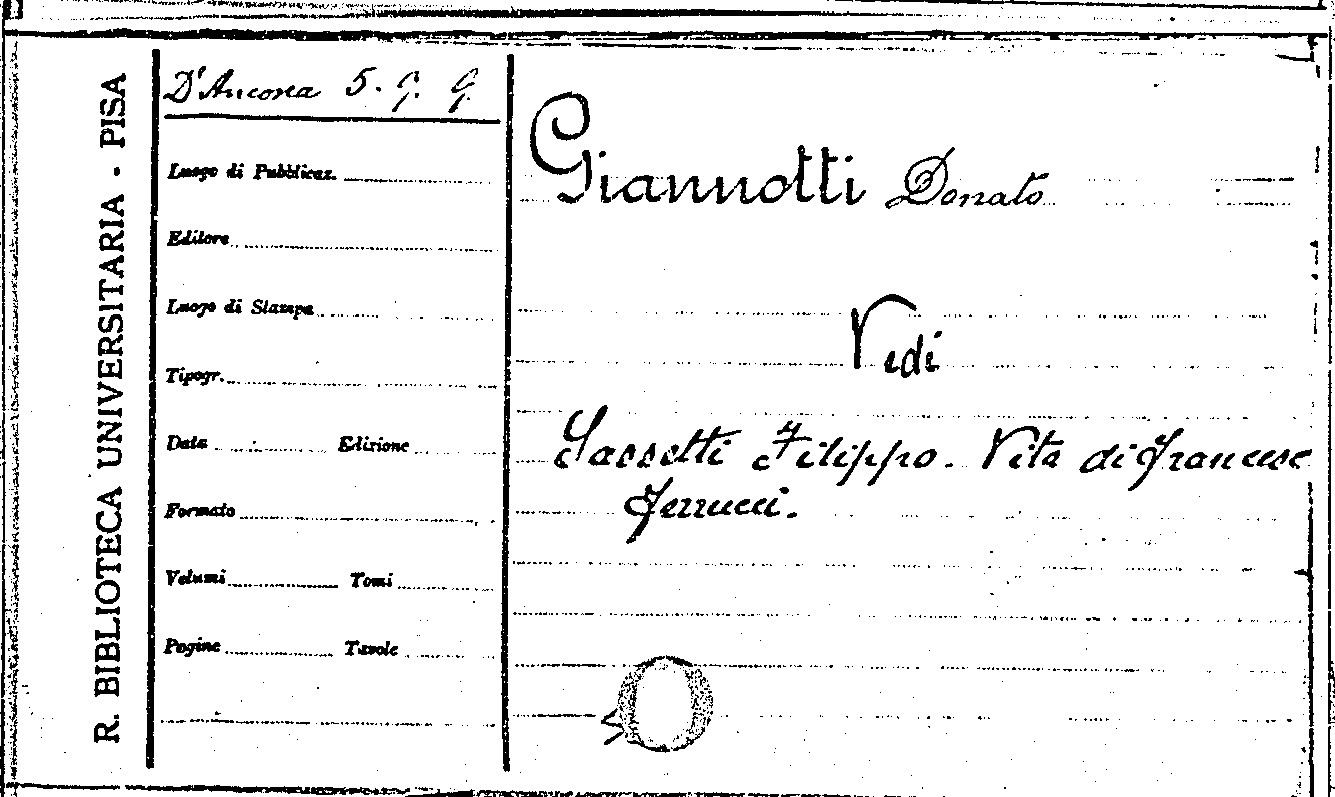 R. BIBLIOTECA UNIVERSITARIA - PISA
D'Ancona 5. G. 9.
Luogo di Pubblicaz.
Editore
Luogo di Stampa
Tipogr.
Data Edizione
Formato
Volumi Tomi
Pagine Tavole
Giannotti Donato
Vedi
Sassetti Filippo. Vita di Francesc
Ferrucci.